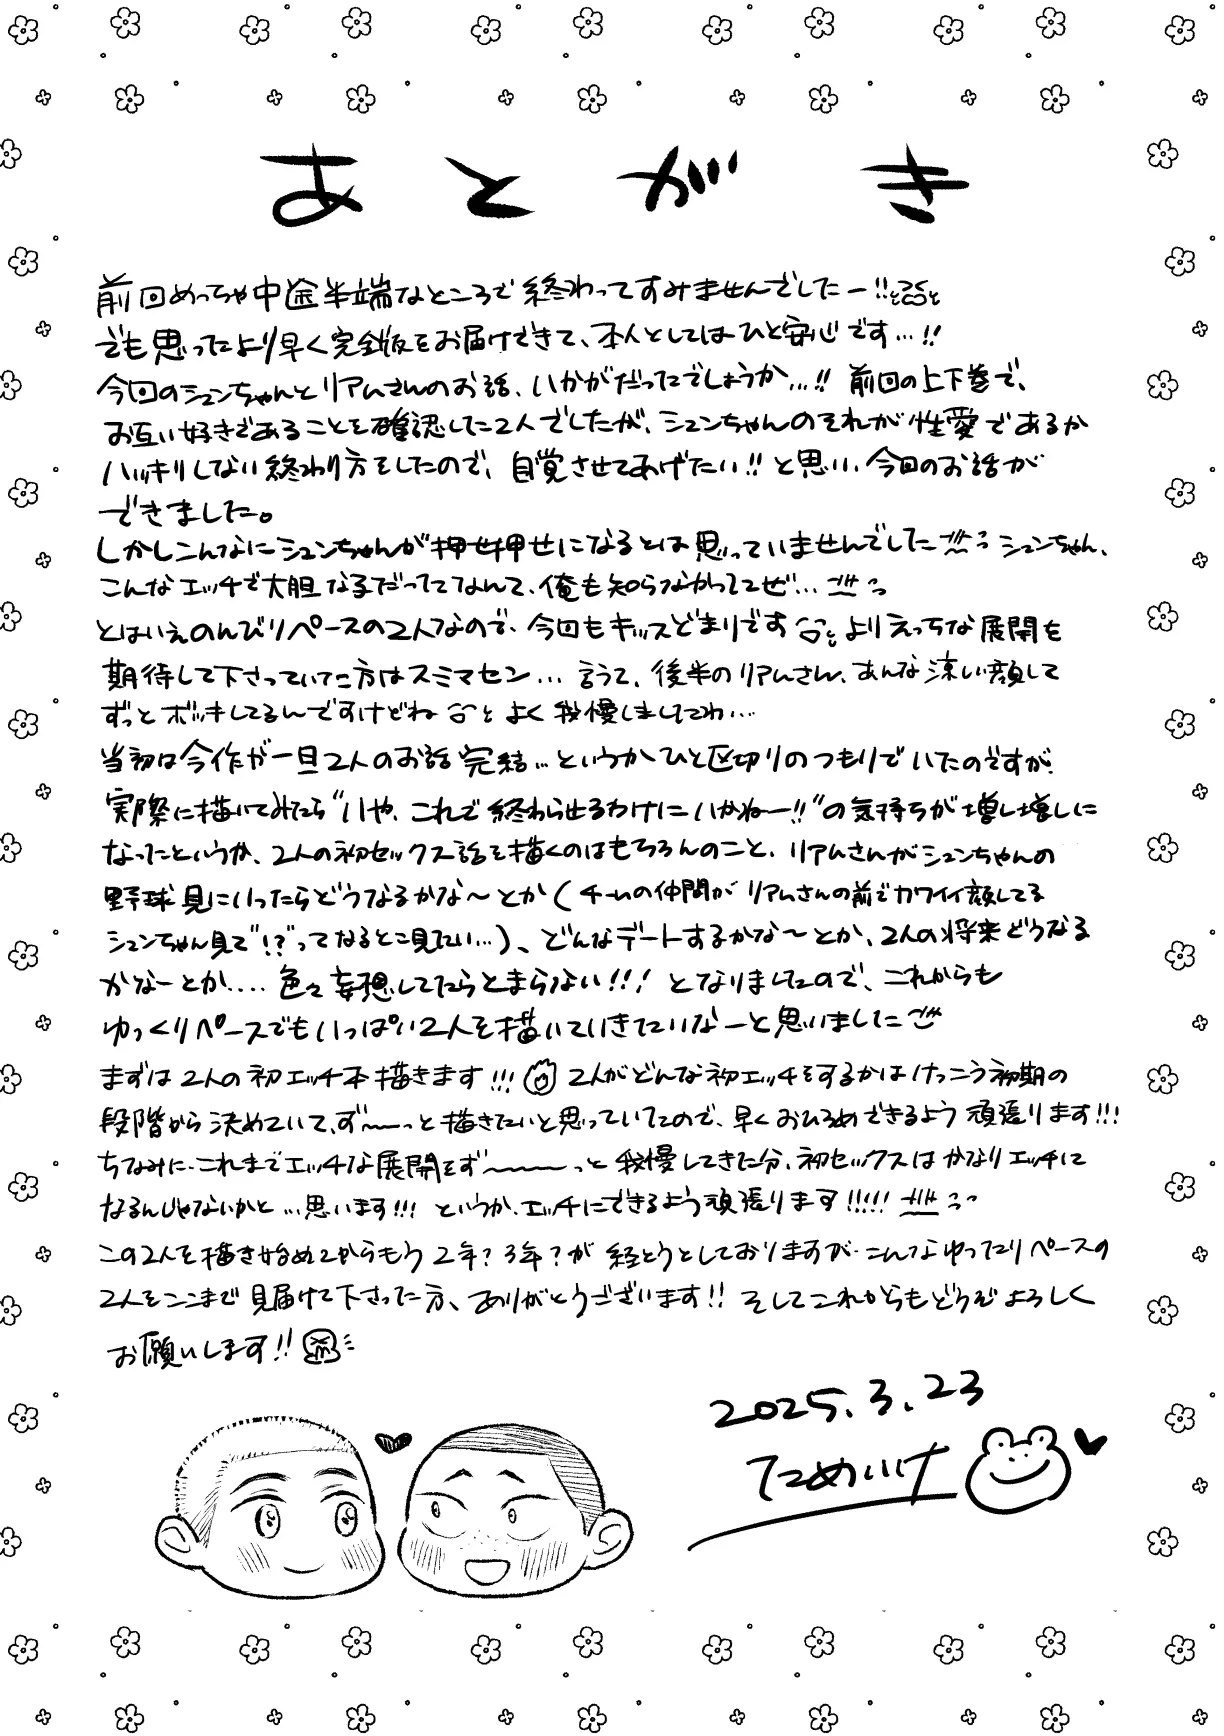 あとがき
前回めっちゃ中途半端なところで終わってすみませんでしたー!!
でも思ったより早く完全版をお届けできて、本人としてはひと安心です…!!
今回のシュンちゃんとリアムさんのお話、いかがだったでしょうか…!! 前回の上下巻で、
お互い好きであることを確認した2人でしたが、シュンちゃんのそれが性愛であるか
ハッキリしない終わり方をしたので、自覚させてあげたい!!と思い、今回のお話が
できました。
しかしこんなにシュンちゃんが押せ押せになるとは思っていませんでした シュンちゃん、
こんなエッチで大胆な子だったなんて、俺も知らなかったぜ…
とはいえのんびりペースの2人なので、今回もキッスどまりです よりえっちな展開を
期待して下さっていた方はスミマセン… 言うて、後半のリアムさん、あんな涼しい顔して
ずっとボッキしてるんですけどね よく我慢しましたわ…
当初は今作が一旦2人のお話完結…というかひと区切りのつもりでいたのですが、
実際に描いてみたら"いや、これで終わらせるわけにいかねー!!"の気持ちが増し増しに
なったというか、2人の初セックス話を描くのはもちろんのこと、リアムさんがシュンちゃんの
野球見にいったらどうなるかな〜とか(チームの仲間がリアムさんの前でカワイイ顔してる
シュンちゃん見て"!?"ってなるとこ見たい…)、どんなデートするかな〜とか、2人の将来どうなる
かなーとか…. 色々妄想してたらとまらない!!! となりましたので、これからも
ゆっくりペースでもいっぱい2人を描いていきたいなーと思いました
まずは2人の初エッチ本描きます!!! 2人がどんな初エッチをするかはけっこう初期の
段階から決めていて、ず〜〜っと描きたいと思っていたので、早くおひろめできるよう頑張ります!!!
ちなみに、これまでエッチな展開をず〜〜〜〜っと我慢してきた分、初セックスはかなりエッチに
なるんじゃないかと…思います!!! というか、エッチにできるよう頑張ります!!!!!
この2人を描き始めてからもう2年?3年?が経とうとしておりますが、こんなゆったりペースの
2人をここまで見届けて下さった方、ありがとうございます!! そしてこれからもどうぞよろしく
お願いします!!
2025.3.23
ためいけ